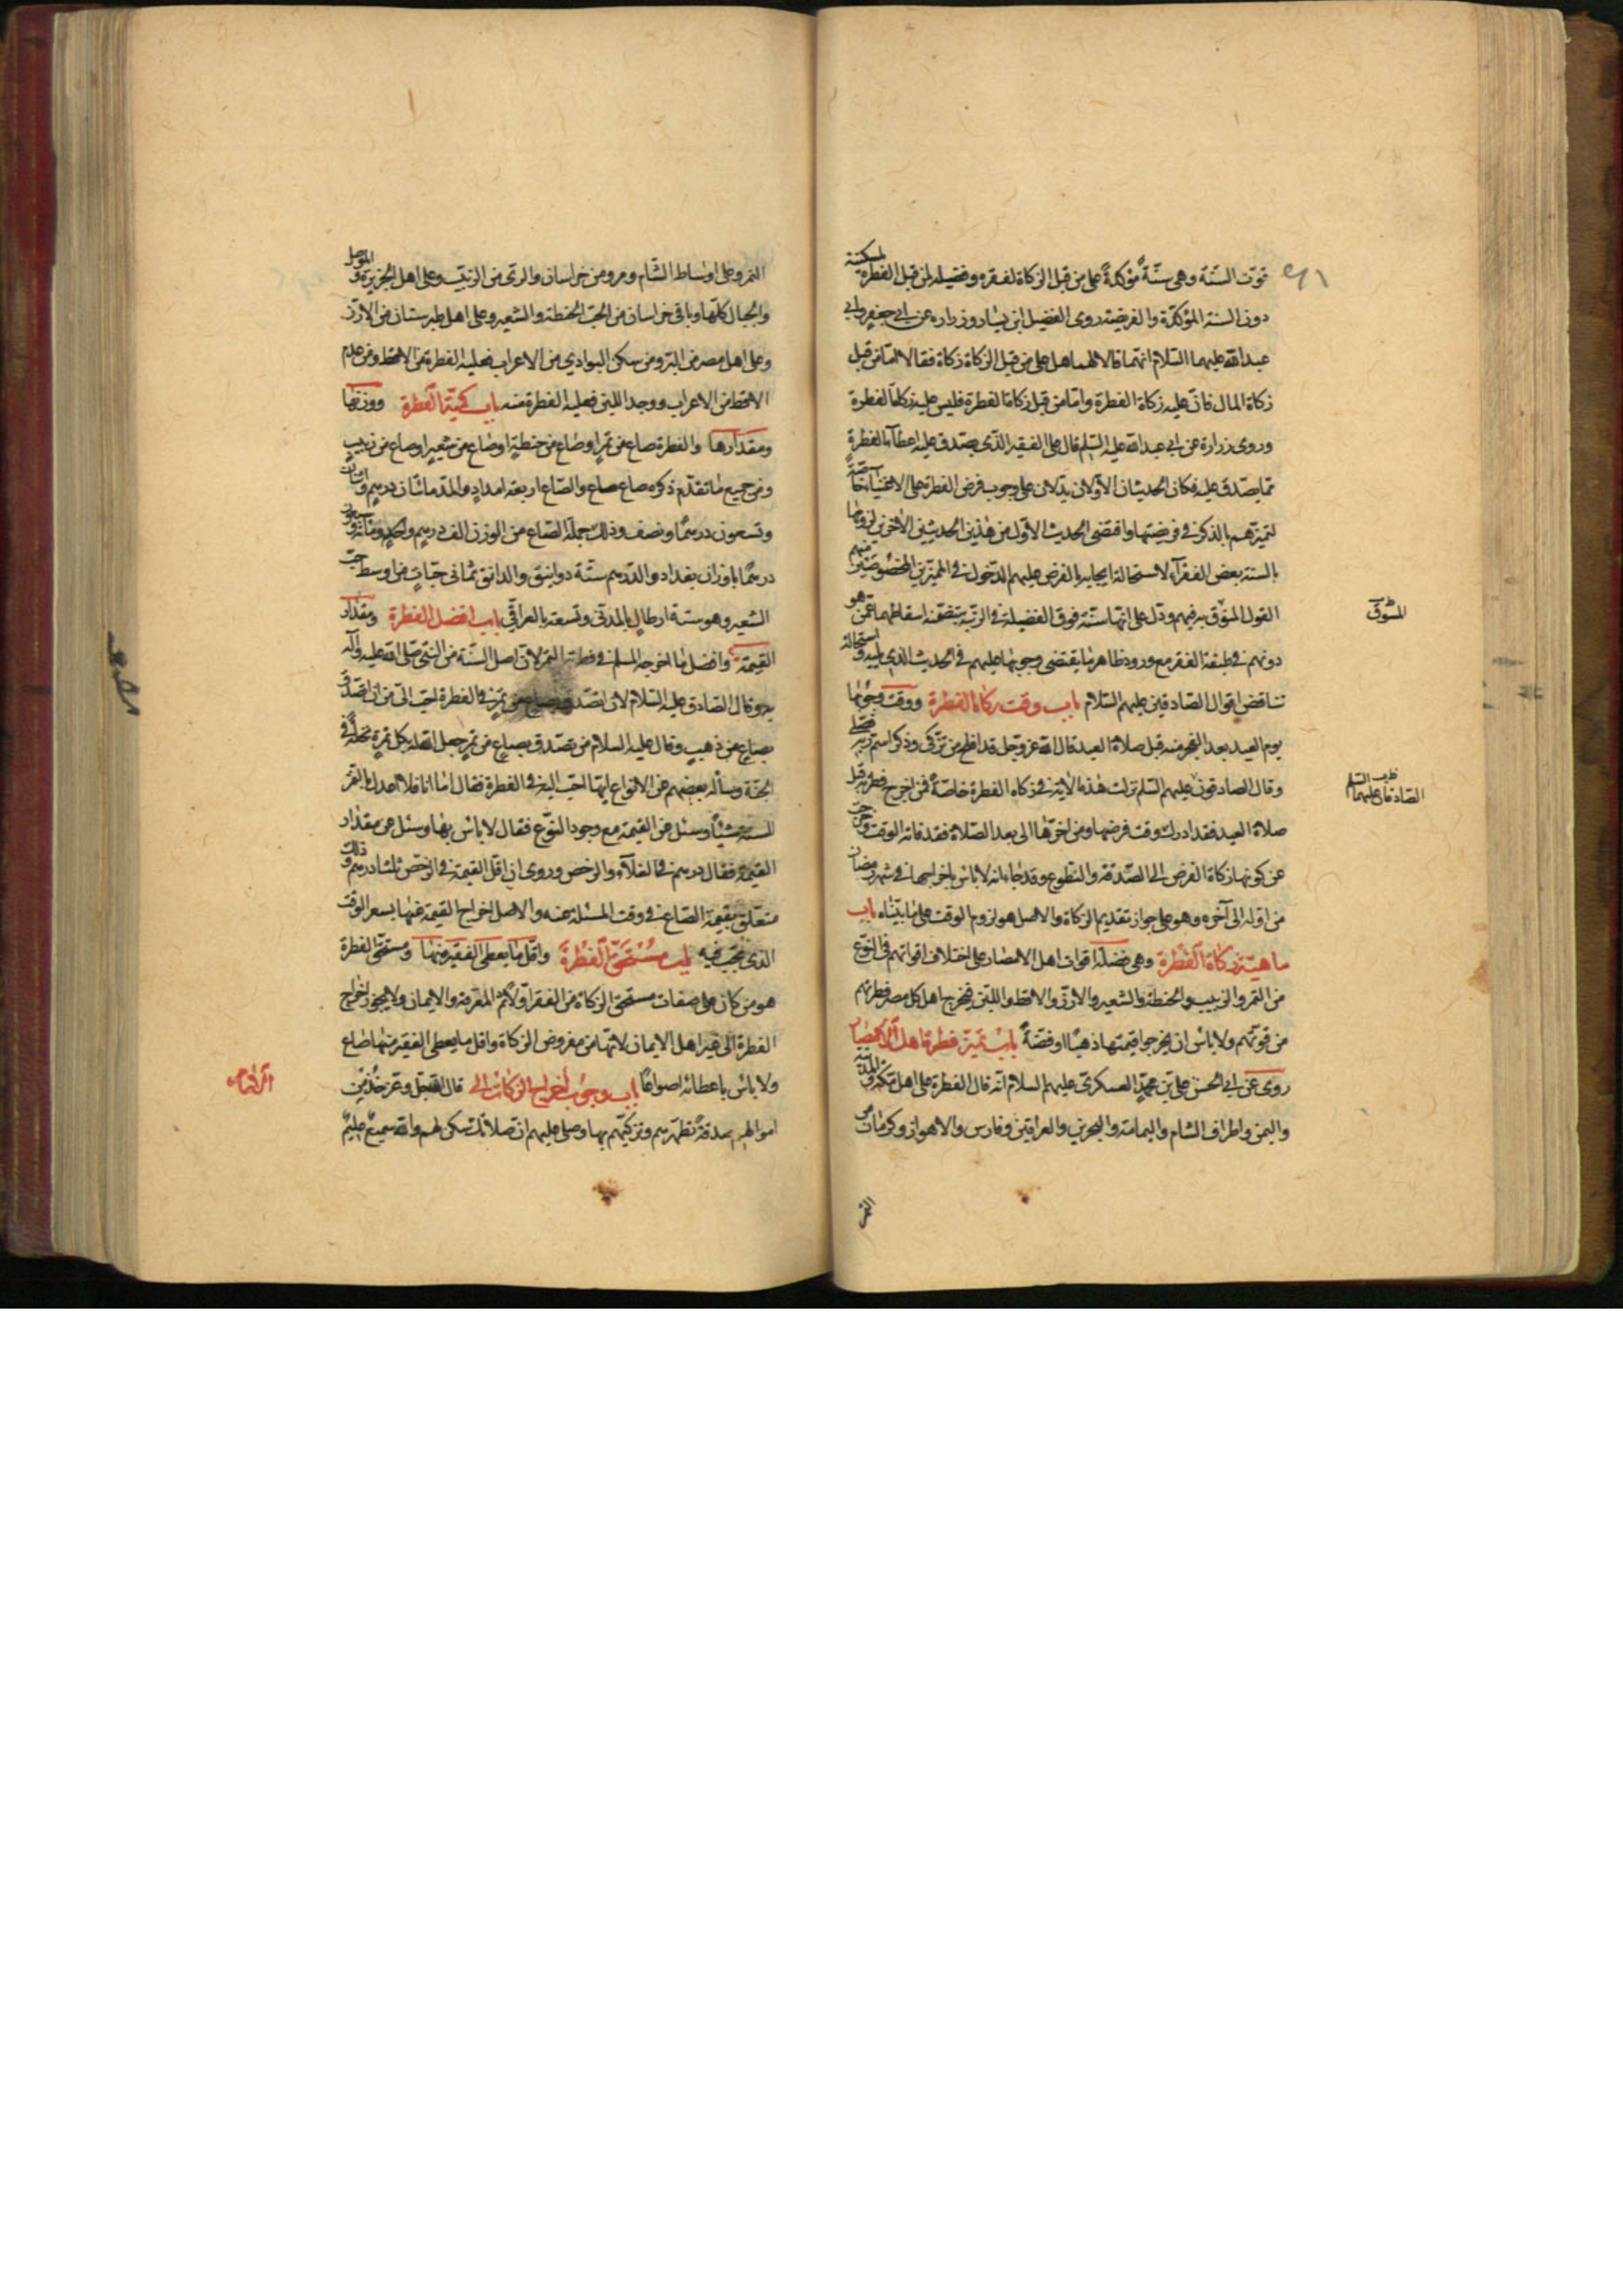 قوت السّنة وهي سنّةٌ مؤكدةٌ على من قبل الزكاة لفقره ومسكنته وفضيلة لمن قبل الفطرة
دون السنة المؤكدة والفريضة روى الفضيل ابن يسار وزرارة عن ابي جعفرٍ وابي
عبدالله عليهما السّلام انهما قالا لهما هل على من قبل الزكاة زكاة فقالا امّا من قبل
زكاة المال فانّ عليه زكاة الفطرة وامّا من قبل زكاة الفطرة فليس عليه زكاة الفطرة
وروى زرارة عن ابي عبدالله عليه السّلم قال على الفقير الذّي يصّدق عليه اعطاء الفطرة
ممّا يصّدق عليه فكان الحديثان الأولان يدّلان على وجوب فرض الفطرة على الاغنياء خاصّةً
لتميزهم بالذكر في فريضتها واقتضى الحديث الاوّل من هذين الحديثين الأخرين لزومها
بالسنة بعض الفقراء لاستحالة ايجابه بالفرض عليهم الدّخول في المميّزين المخصوصين منهم
القول المسوّق فيهم ودلّ على انّها سنّة فوق الفضيلة في الرتبة يتضمّنه اسقاطهما عمّن هو
دونهم في طبقة الفقر مع ورود ظاهر ما يقتضي وجوبها عليهم في الحديث الذي يليه واستحالة
تناقض اقوال الصّادقين عليهم السّلام باب وقت زكاة الفطرة ووقت وجوبها
يوم العيد بعد الفجر منه قبل صلاة العيد قال الله عزّ وجلّ قد افلح من تزكّى وذكر اسم ربّه فصلّى
وقال الصادقون عليهم السّلم نزلت هذه الآية في زكاة الفطرة خاصّةً فمن اخرج فطرته قبل
صلاة العيد فقد ادرك وقت فرضها ومن اخرّها الى بعد الصّلاة فقد فاته الوقت وخرجت
عن كونها زكاة الفرض الى الصّدقة والتطوع وقد جاء انه لا باس باخراجها في شهر رمضان
من اوّله الى آخره وهو على جواز تقديم الزكاة والاصل هو لزوم الوقت على ما بيّناه باب
ماهيّة زكاة الفطرة وهي فضلة اقوات اهل الامصار على اختلاف اقواتهم في النّوع
من التّمر والزبيب والحنطة والشعير والارز والاقط واللّبن فيخرج اهل كلّ مصرٍ فطرتهم
من قوتهم ولا باس ان يخرجوا قيمتها ذهبًا او فضةً باب تميز فطرة اهل الامصار
روي عن ابي الحسن علي بن محمّدٍ العسكري عليهم السلام انّه قال الفطرة على اهل مكّة والمدينة
واليمن واطراف الشام واليمامة والبحرين والعراقين وفارس والاهواز وكرمان من
المسّوق
الصّادقان عليهما السّلم
التمر
التمر وعلى اوساط الشّام ومرو من خراسان والرّي من الزبيب وعلى اهل الجزيرة والموصل
والجبال كلّها وباقي خراسان من الحبّ الحنطة والشعير وعلى اهل طبرستان من الارزّ
وعلى اهل مصر من البرّ ومن سكن البوادي من الاعراب فعليه الفطرة من الاقط ومن عدم
الاقط من الاعراب ووجد اللبن فعليه الفطرة منه باب كميّة الفطرة ووزنها
ومقدارها والفطرة صاع من تمرٍ او صاع من حنطةٍ او صاع من شعيرٍ او صاع من زبيبٍ
ومن جميع ما تقدّم ذكره صاع صاع والصّاع اربعة امدادٍ والمدّ مائتان درهمٍ واثنان
وتسعون درهمًا ونصف وذلك جملة الصّاع من الوزن الف درهمٍ واحدٍ ومائة وسبعون
درهمًا باوزان بغداد والدّرهم ستّة دوانيق والدانق ثماني حبّاتٍ من اوسط حبّ
الشعير وهو ستة ارطالٍ بالمدنّي وتسعة بالعراقيّ باب افضل الفطرة ومقدار
القيمة وافضل ما اخرجه المسلم في فطرته التمر لانّ اصل السّنة من النبيّ صلّى الله عليه وآله
وقال الصّادق عليه السّلام لان اتصدّق بصاعٍ من تمرٍ في الفطرة احبّ اليّ من ان اتصدّق
بصاعٍ من ذهبٍ وقال عليه السلام من تصدّق بصاعٍ من تمرٍ جعل الله له بكل تمرةٍ نخلةً في
الجنّة وسأله بعضهم عن الانواع ايّها احبّ اليه في الفطرة فقال امّا انا فلا اعدل بالتمر
للسنة شيئًا وسئل عن القيمة مع وجود النّوع فقال لا باس بها وسئل عن مقدار
القيمة فقال درهم في الغلاء والرخص وروى ان اقل القيمة في الرخص ثلثا درهم وذلك
متعلّق بقيمة الصّاع في وقت المسئلة عنه والاصل اخراج القيمة عنها بسعر الوقت
الذي تجب فيه باب مستحقّ الفطرة واقلّ ما يعطى الفقير منها ومستحقّ الفطرة
هو من كان على صفات مستحق الزكاة من الفقر اولاً ثمّ المعرفة والايمان ولا يجوز اخراج
الفطرة الى غير اهل الايمان لانّها من مفروض الزكاة واقل ما يعطى الفقير منها صاع
ولا باس باعطائه اصواعًا باب وجوب اخراج الزكاة الى قال الله عزّ وجلّ خذ من
اموالهم صدقةً تطهّرهم وتزكّيهم بها وصلّ عليهم انّ صلاتك سكن لهم والله سميعٌ عليمٌ
الى الامام